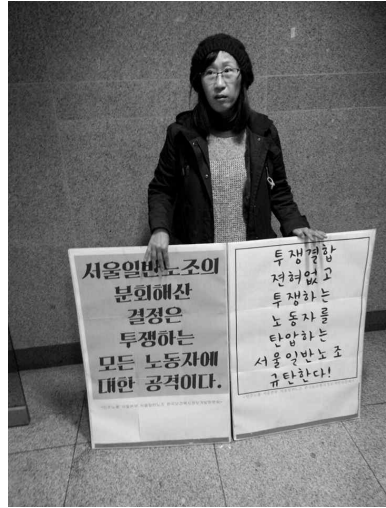 서울일반노조의
분회해산
결정은
투쟁하는
모든 노동자에
대한 공격이다.
투쟁결합
전혀없고
투쟁하는
노동자를
탄압하는
서울일반노조
규탄한다!